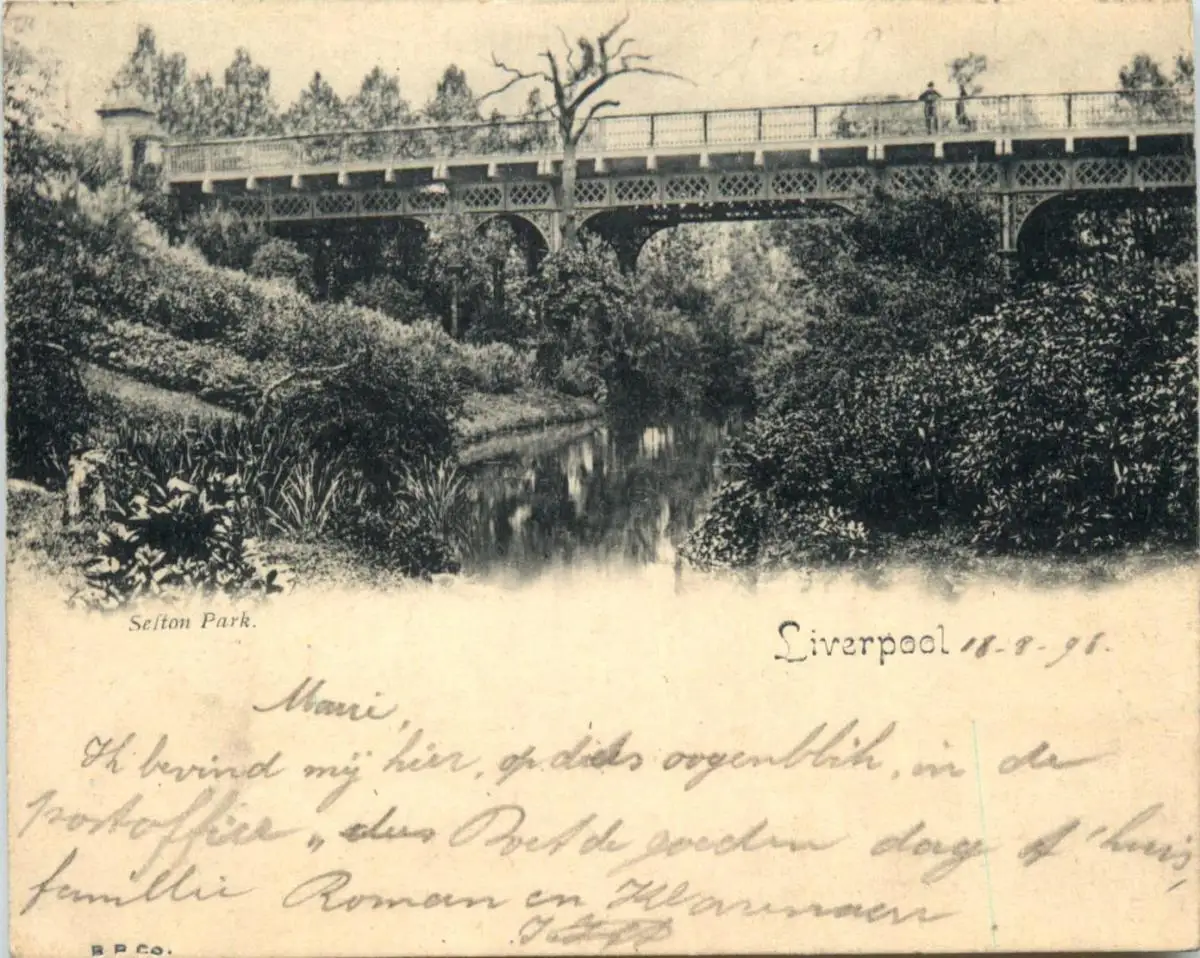 Sefton Park.
Liverpool 18-8-98.
Marie,
Ik bevind mij hier, op dids oogenblik, in de
postoffice „dus Doet de goeden dag t'huis,
famillie Roman en
B.P.Co.